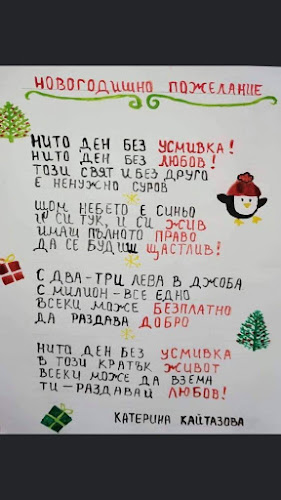 НОВОГОДИШНО ПОЖЕЛАНИЕ
НИТО ДЕН БЕЗ УСМИВКА!
НИТО ДЕН БЕЗ ЛЮБОВ!
ТОЗИ СВЯТ И БЕЗ ДРУГО
Е НЕНУЖНО СУРОВ
ЩОМ НЕБЕТО Е СИНЬО
И СИ ТУК, И СИ ЖИВ
ИМАШ ПЪЛНОТО ПРАВО
ДА СЕ БУДИШ ЩАСТЛИВ!
С ДВА-ТРИ ЛЕВА В ДЖОБА
С МИЛИОН-ВСЕ ЕДНО
ВСЕКИ МОЖЕ БЕЗПЛАТНО
ДА РАЗДАВА ДОБРО
НИТО ДЕН БЕЗ УСМИВКА
В ТОЗИ КРАТЪК ЖИВОТ
ВСЕКИ МОЖЕ ДА ВЗЕМА
ТИ-РАЗДАВАЙ ЛЮБОВ!
КАТЕРИНА КАЙТАЗОВА